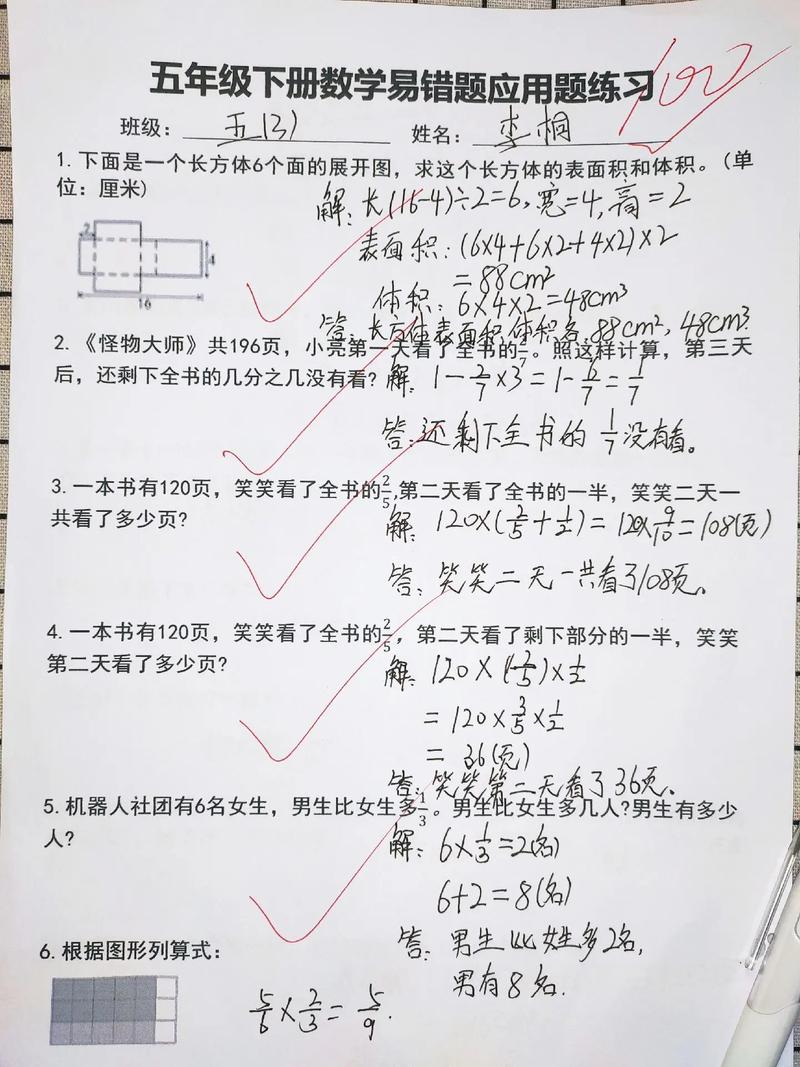 五年级下册数学易错题应用题练习
100
班级: 五(3) 姓名: 李桐
1. 下面是一个长方体6个面的展开图，求这个长方体的表面积和体积。(单
位: 厘米)
解: 长(16-4)÷2=6, 宽=4, 高=2
表面积: (6×4+6×2+4×2)×2
=88cm²
体积: 6×4×2=48cm³
答: 长方体表面积,体积各88cm², 48cm³.
2
4
16
2. 《怪物大师》共196页，小亮第一天看了全书的。照这样计算，第三天
后，还剩下全书的几分之几没有看?
解: 1-2/7×3=1-6/7=1/7
答: 还剩下全书的1/7没有看。
3. 一本书有120页，笑笑看了全书的2/5,第二天看了全书的一半，笑笑二天一
共看了多少页?
解: 120×(2/5+1/2)=120×9/10=108(页)
答: 笑笑二天一共看了108页。
4. 一本书有120页，笑笑看了全书的2/5，第二天看了剩下部分的一半，笑笑
第二天看了多少页?
解: 120×(1-2/5)×1/2
=120×3/5×1/2
=36(页)
答: 笑笑第二天看了36页。
5. 机器人社团有6名女生，男生比女生多1/3。男生比女生多几人?男生有多少
人?
解: 6×1/3=2(名)
6+2=8(名)
答: 男生比女生多2名,
男有8名.
6. 根据图形列算式:
5/6×2/3=5/9.